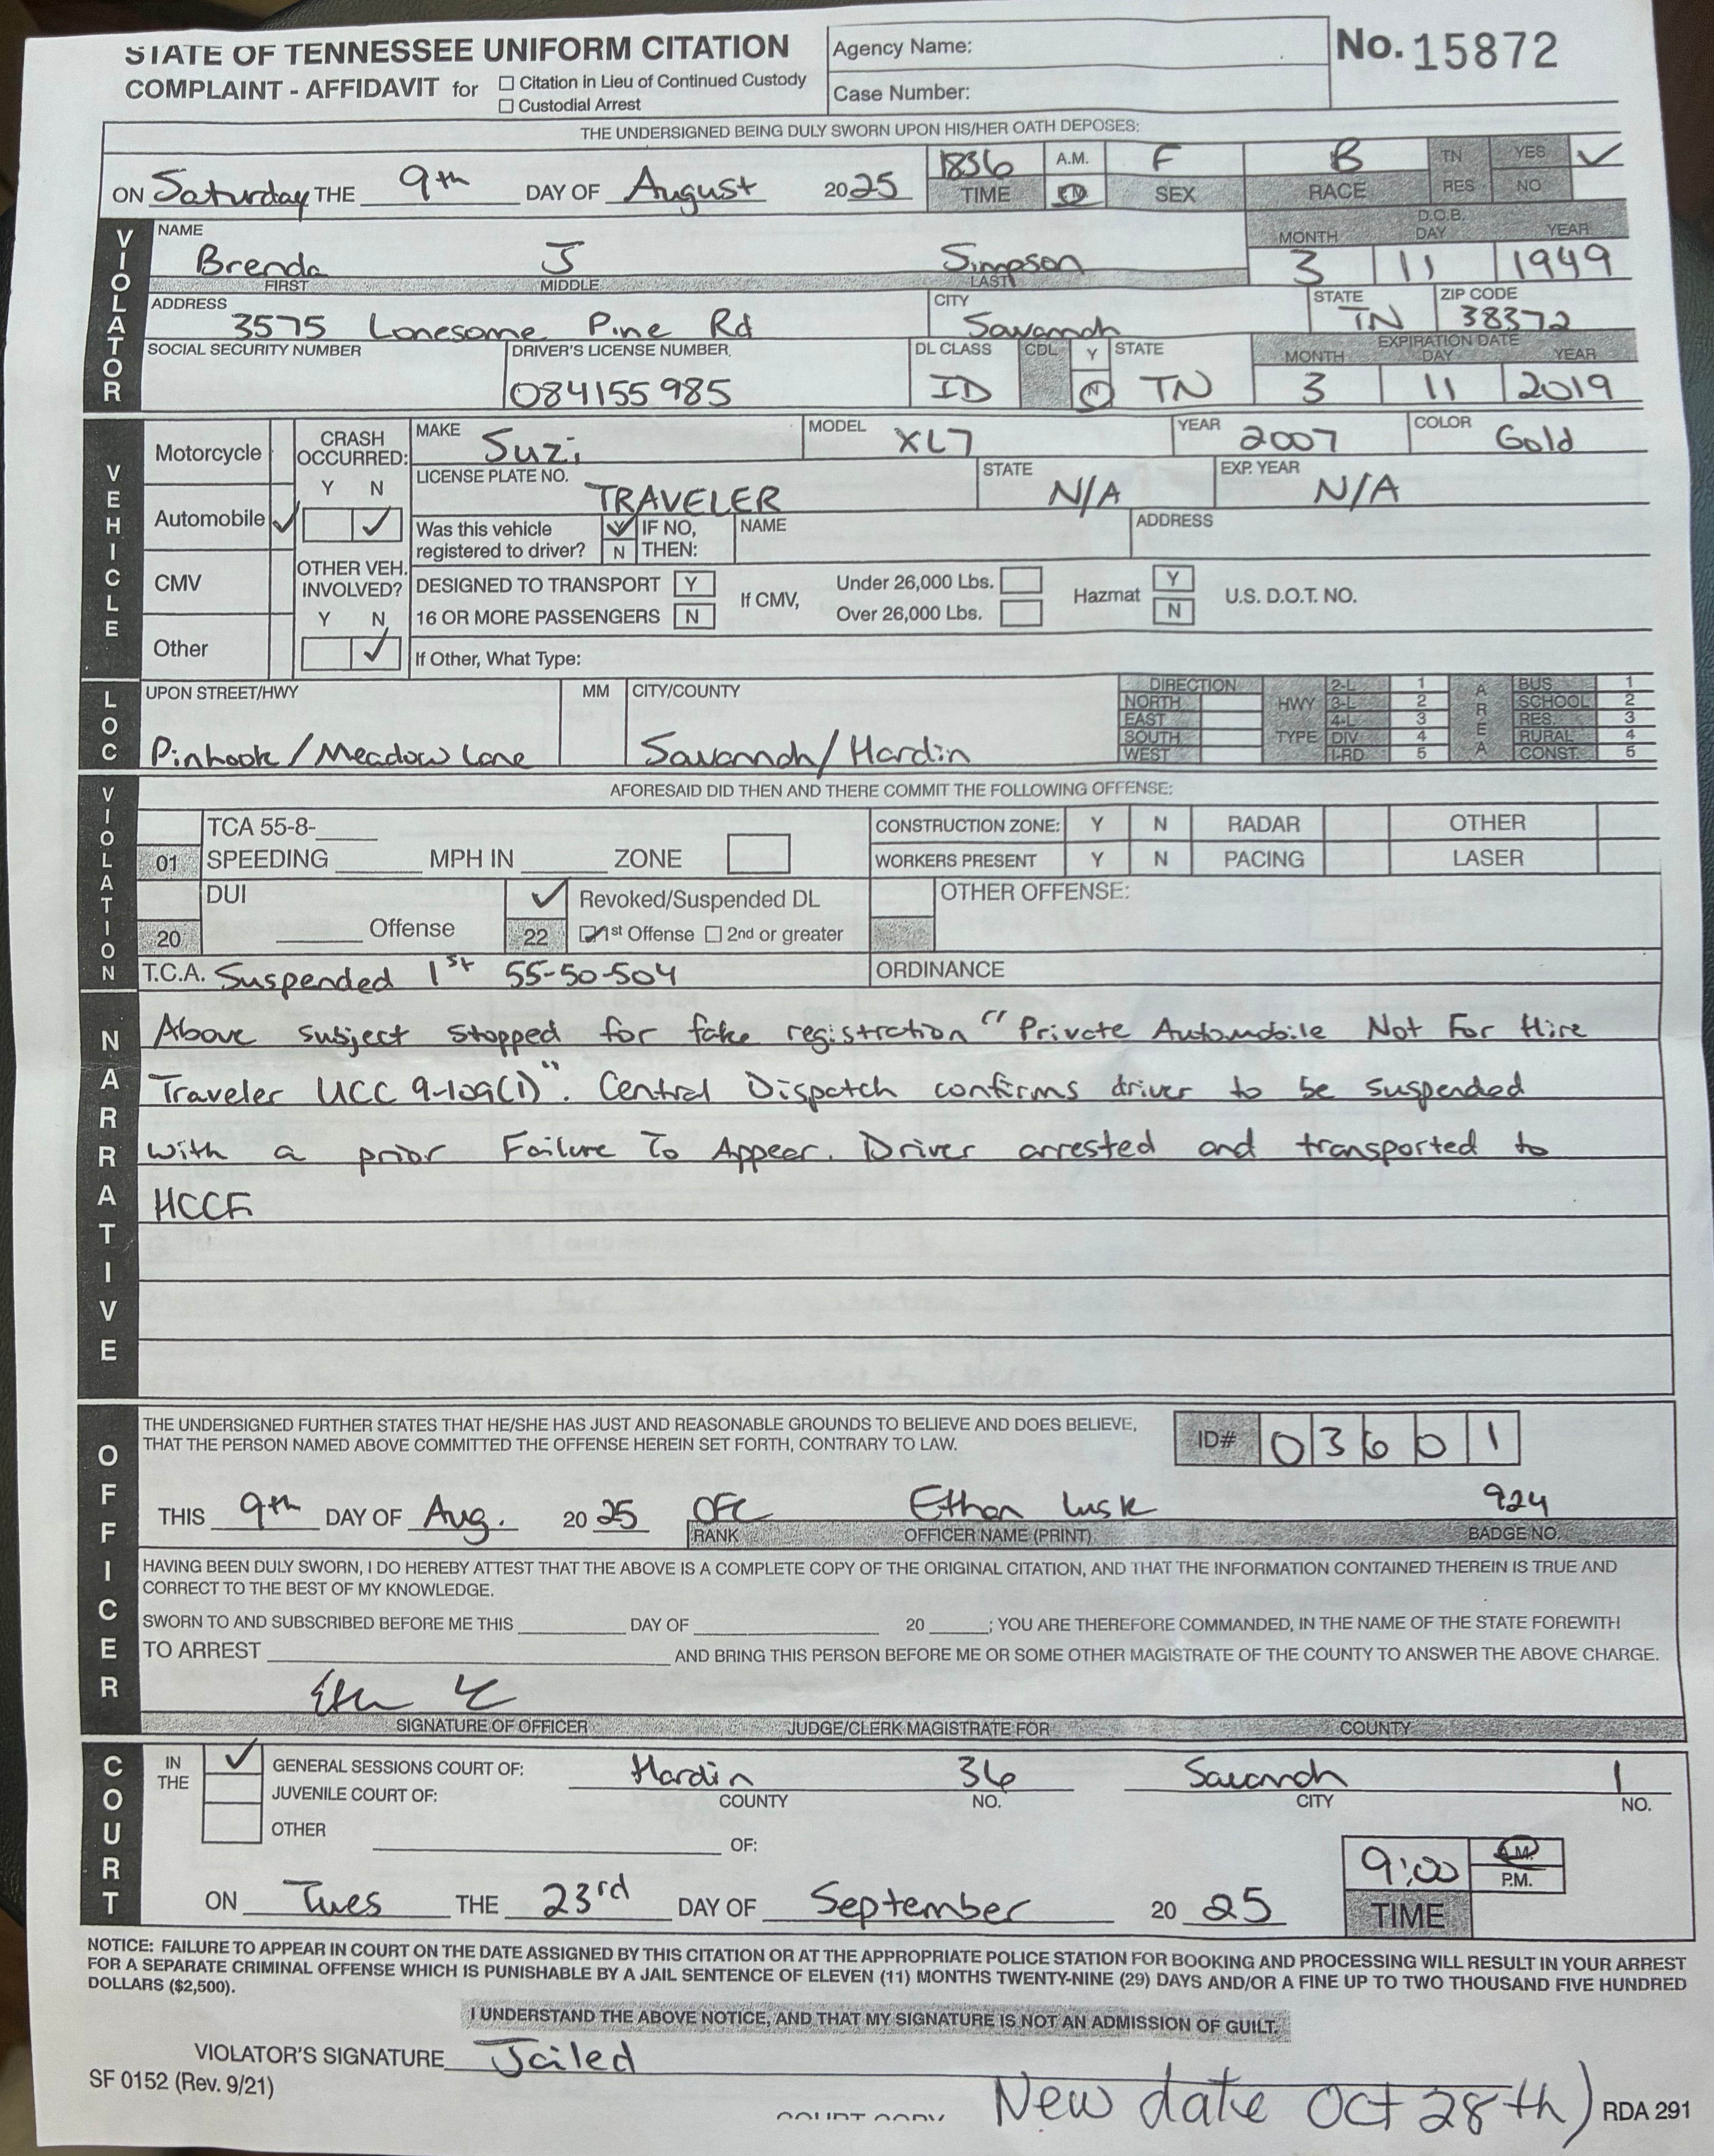 STATE OF TENNESSEE UNIFORM CITATION
COMPLAINT - AFFIDAVIT for
Citation in Lieu of Continued Custody
Custodial Arrest
Agency Name:
Case Number:
No. 15872
THE UNDERSIGNED BEING DULY SWORN UPON HIS/HER OATH DEPOSES:
ON Saturday THE 9th DAY OF August 2025
1836 TIME A.M. F SEX B RACE TN RES YES NO
VIOLATOR
NAME Brenda J Simpson
FIRST MIDDLE LAST
D.O.B. MONTH DAY YEAR
3 11 1949
ADDRESS 3575 Lonesome Pine Rd
CITY Savannah
STATE TN ZIP CODE 38372
SOCIAL SECURITY NUMBER
DRIVER'S LICENSE NUMBER 084155985
DL CLASS ID CDL Y N STATE TN
EXPIRATION DATE MONTH DAY YEAR
3 11 2019
VEHICLE
Motorcycle
Automobile
CMV
Other
CRASH OCCURRED: Y N
OTHER VEH. INVOLVED? Y N
MAKE Suzi MODEL XL7 YEAR 2007 COLOR Gold
LICENSE PLATE NO. TRAVELER STATE N/A EXP. YEAR N/A
Was this vehicle registered to driver? Y N IF NO, THEN: NAME ADDRESS
DESIGNED TO TRANSPORT 16 OR MORE PASSENGERS Y N
If CMV, Under 26,000 Lbs. Over 26,000 Lbs. Hazmat Y N U.S. D.O.T. NO.
If Other, What Type:
LOC
UPON STREET/HWY Pinhook / Meadow Lane
MM
CITY/COUNTY Savannah / Hardin
DIRECTION NORTH EAST SOUTH WEST
HWY TYPE 2-L 1 3-L 2 4-L 3 DIV 4 I-RD 5
AREA BUS 1 SCHOOL 2 RES. 3 RURAL 4 CONST. 5
VIOLATION
AFORESAID DID THEN AND THERE COMMIT THE FOLLOWING OFFENSE:
TCA 55-8-
01 SPEEDING MPH IN ZONE
CONSTRUCTION ZONE: Y N RADAR OTHER
WORKERS PRESENT Y N PACING LASER
DUI
20 Offense
Revoked/Suspended DL
22 1st Offense 2nd or greater
OTHER OFFENSE:
T.C.A. Suspended 1st 55-50-504
ORDINANCE
NARRATIVE
Above subject stopped for fake registration "Private Automobile Not For Hire
Traveler UCC 9-109(1)". Central Dispatch confirms driver to be suspended
with a prior Failure To Appear. Driver arrested and transported to
HCCF
OFFICER
THE UNDERSIGNED FURTHER STATES THAT HE/SHE HAS JUST AND REASONABLE GROUNDS TO BELIEVE AND DOES BELIEVE,
THAT THE PERSON NAMED ABOVE COMMITTED THE OFFENSE HEREIN SET FORTH, CONTRARY TO LAW.
ID# 03601
THIS 9th DAY OF Aug. 2025 OFC Ethan Lusk 924
RANK OFFICER NAME (PRINT) BADGE NO.
HAVING BEEN DULY SWORN, I DO HEREBY ATTEST THAT THE ABOVE IS A COMPLETE COPY OF THE ORIGINAL CITATION, AND THAT THE INFORMATION CONTAINED THEREIN IS TRUE AND
CORRECT TO THE BEST OF MY KNOWLEDGE.
SWORN TO AND SUBSCRIBED BEFORE ME THIS DAY OF 20 ; YOU ARE THEREFORE COMMANDED, IN THE NAME OF THE STATE FOREWITH
TO ARREST AND BRING THIS PERSON BEFORE ME OR SOME OTHER MAGISTRATE OF THE COUNTY TO ANSWER THE ABOVE CHARGE.
SIGNATURE OF OFFICER JUDGE/CLERK MAGISTRATE FOR COUNTY
COURT
IN THE
GENERAL SESSIONS COURT OF: Hardin 36 Savannah 1
JUVENILE COURT OF: COUNTY NO. CITY NO.
OTHER OF:
ON Tues THE 23rd DAY OF September 2025
9:00 A.M. P.M.
TIME
NOTICE: FAILURE TO APPEAR IN COURT ON THE DATE ASSIGNED BY THIS CITATION OR AT THE APPROPRIATE POLICE STATION FOR BOOKING AND PROCESSING WILL RESULT IN YOUR ARREST
FOR A SEPARATE CRIMINAL OFFENSE WHICH IS PUNISHABLE BY A JAIL SENTENCE OF ELEVEN (11) MONTHS TWENTY-NINE (29) DAYS AND/OR A FINE UP TO TWO THOUSAND FIVE HUNDRED
DOLLARS ($2,500).
I UNDERSTAND THE ABOVE NOTICE, AND THAT MY SIGNATURE IS NOT AN ADMISSION OF GUILT.
VIOLATOR'S SIGNATURE Jailed
SF 0152 (Rev. 9/21)
COURT COPY
New date Oct 28th)
RDA 291